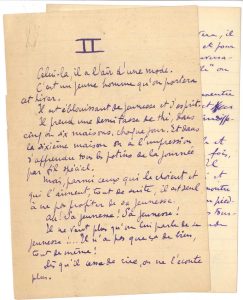 II
Celui-là, il a l'air d'une mode.
C'est un jeune homme qu'on portera
cet hiver.
Il est éblouissant de jeunesse et d'esprit.
Il prend une demi tasse de thé, dans
cinq ou six maisons, chaque jour. Et dans
la dixième maison on a l'impression
d'apprendre tous les potins de la journée
par fil spécial.
Mais, parmi ceux qui le choient et
qui l'aiment, tout de suite, il est seul
à ne pas profiter de sa jeunesse.
Ah! Sa jeunesse! Sa jeunesse!
Il ne veut plus qu'on lui parle de sa
jeunesse.... Il n'a pas que ça de bien,
tout de même!
Dès qu'il cesse de rire, on ne l'écoute
plus.